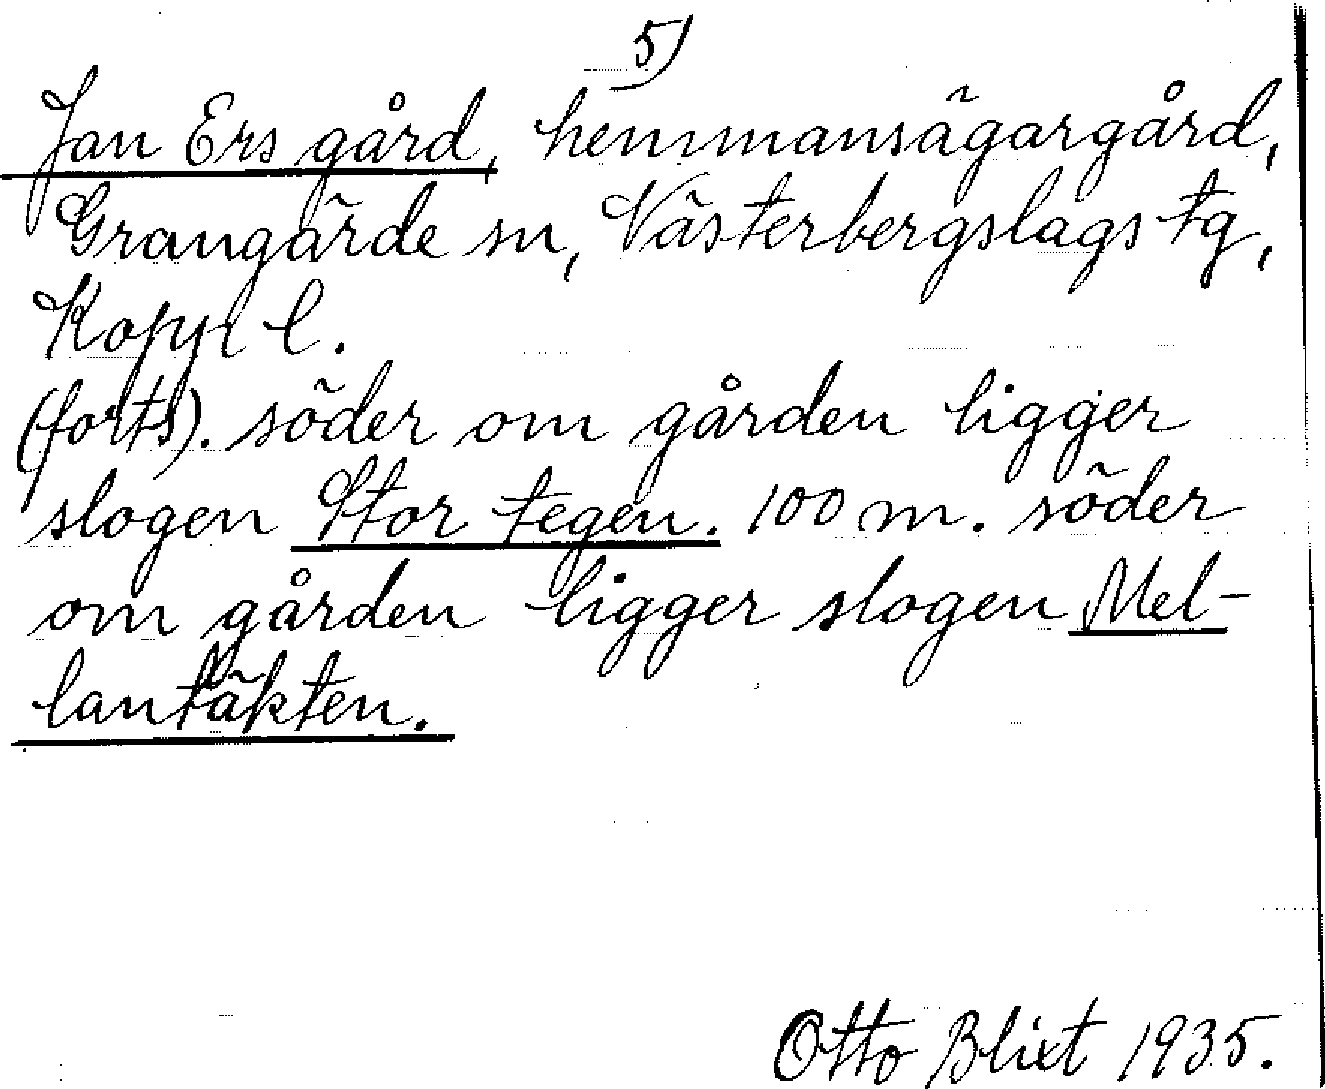 5)
Jan Ers gård, hemmansägargård,
Grangärde sn, Västerbergslags tg,
Kopp. l.
(forts). söder om gården ligger
slogen Stor tegen. 100 m. söder
om gården ligger slogen Mel-
lantäkten.
Otto Blixt 1935.